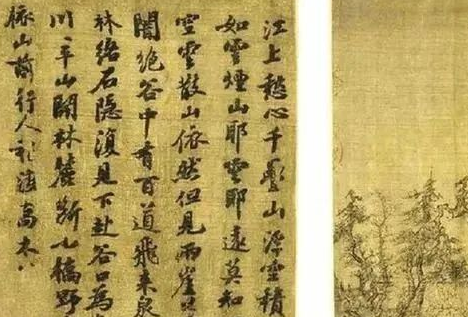 江上愁心千疊山浮空積
如雲煙山耶雲耶遠莫知
空雲散山依然但見兩崖
闇絕谷中有百道飛來泉
林絡石隱復見下赴谷口為
川平山開林麓斷小橋野
依山前行人稍渡喬木